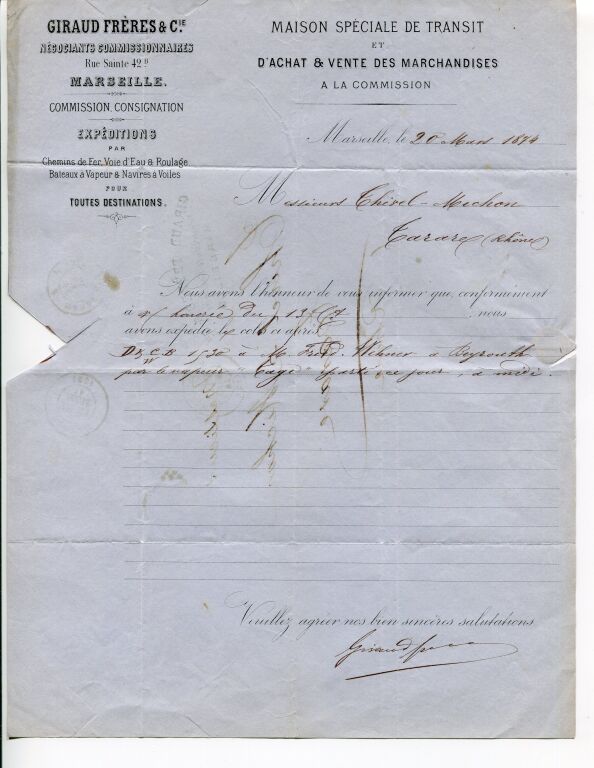 GIRAUD FRÈRES & C.IE
NÉGOCIANTS COMMISSIONNAIRES
Rue Sainte 42
MARSEILLE.
COMMISSION, CONSIGNATION
EXPÉDITIONS
PAR
Chemins de Fer, Voie d'Eau & Roulage
Bateaux à Vapeur & Navires à Voiles
POUR
TOUTES DESTINATIONS.
MAISON SPÉCIALE DE TRANSIT
ET
D'ACHAT & VENTE DES MARCHANDISES
A LA COMMISSION
Marseille, le 20 Mars 1874
Messieurs Thivel-Michon
Tarare (Rhône)
Nous avons l'honneur de vous informer que, conformément
à v/ honorée du 13 ct, nous
avons expédié les colis ci après
1530 à M. Fréd. Wehner à Beyrouth
par le vapeur "Tage" parti ce jour, à midi.
Veuillez agréer nos bien sincères salutations
Giraud frères